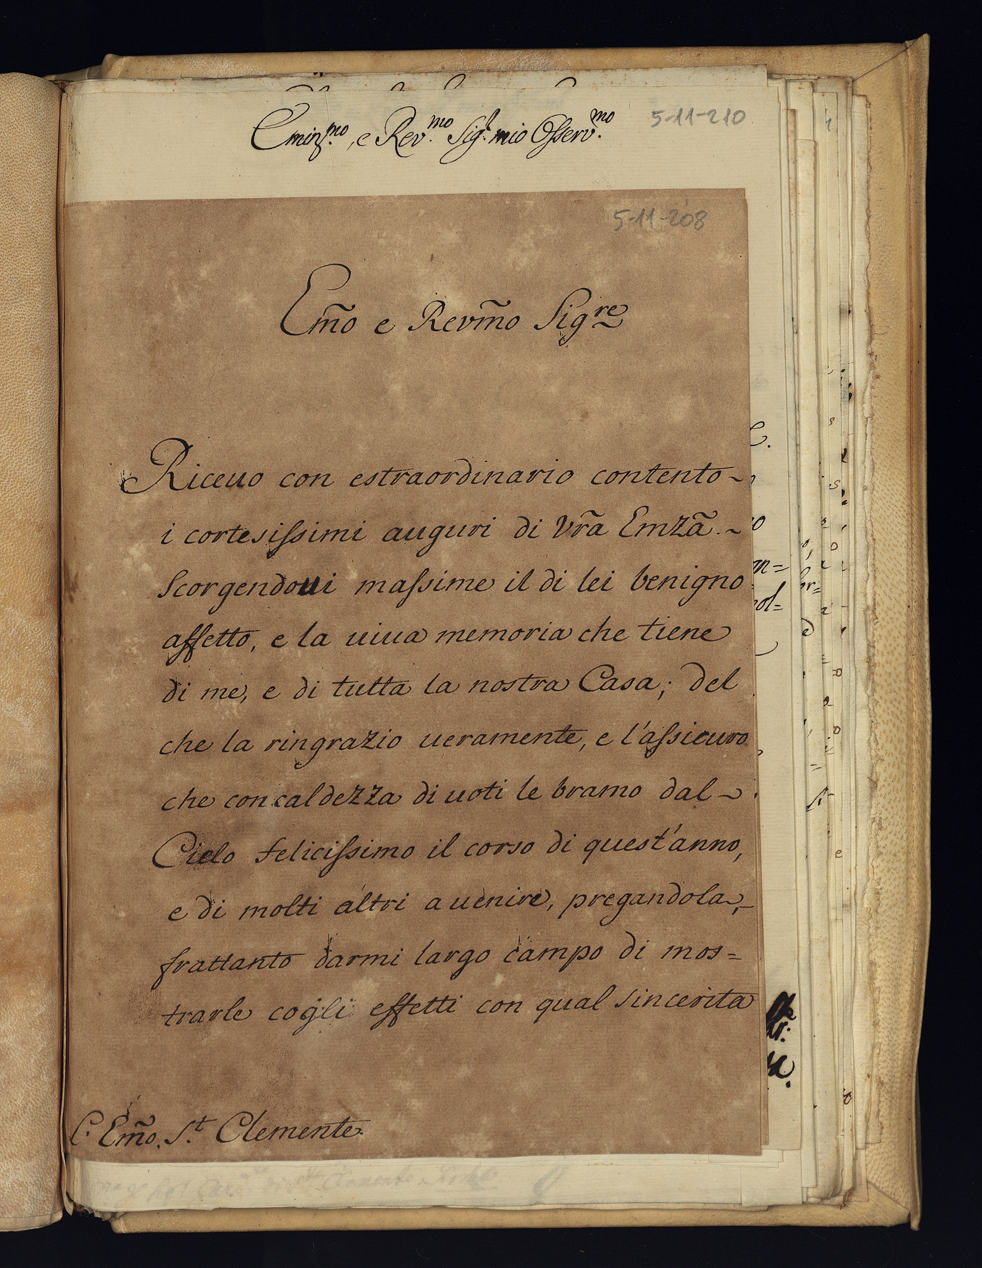 Emin.mo, e Rev.mo Sig.r mio Osserv.mo
5-11-210
5-11-208
Em̃o e Revm̃o Sig.re
Riceuo con estraordinario contento~
i cortesissimi auguri di Vr̃a Emzã.~
Scorgendoui massime il di lei benigno
affetto, e la uiua memoria che tiene
di me, e di tutta la nostra Casa; del
che la ringrazio ueramente, e l'assicuro
che con caldezza di uoti le bramo dal~
Cielo felicissimo il corso di quest'anno,
e di molti altri auenire, pregandola,
frattanto darmi largo campo di mos=
trarle cogli effetti con qual sincerità
C. Em̃o. S.t Clemente